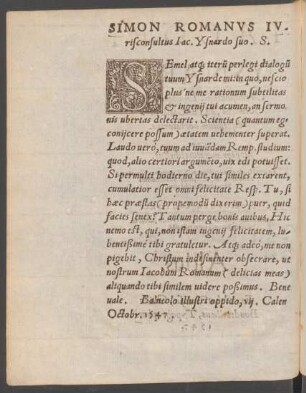 SIMON ROMANVS IV.
risconsultus Iac. Ysnardo suo. S.
SEmel atq; iterũ perlegi dialogũ
tuum Ysnarde mi: in quo, nescio
plus ne me rationum subtilitas
& ingenij tui acumen, an sermo
nis ubertas delectarit. Scientia (quantum ego
conijcere possum) ætatem uehementer superat.
Laudo uerò, tuum ad iuuãdam Remp. studium:
quod, alio certiori argumẽto, uix edi potuisset.
Si permulti hodierno die, tui similes extarent,
cumulatior esset omni felicitate Resp. Tu, si
hæc præstas (propemodũ dixerim) puer, quid
facies senex? Tantum perge bonis auibus, Hic
nemo est, qui, non istam ingenij felicitatem, lu-
bentißimè tibi gratuletur. Atq; adeò, me non
pigebit, Christum indesinenter obsecrare, ut
nostrum Iacobum Romanum (delicias meas)
aliquando tibi similem uidere poßimus. Bene
uale. illustri oppido, xij. Calen
Octobr. 1547.